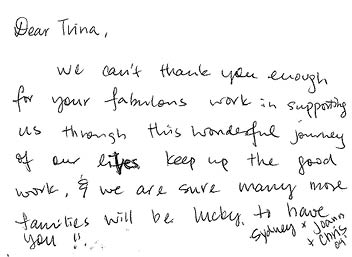 Dear Trina,
we can't thank you enough
for your fabulous work in supporting
us through this wonderful journey
of our lives keep up the good
work, & we are sure many more
families will be lucky to have
you !!
Sydney + Joann
+ Chris
04'